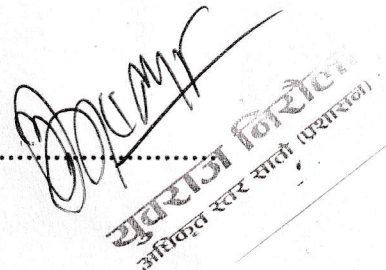 युवराज निरौला
अधिकृत स्तर सातौं (प्रशासन)